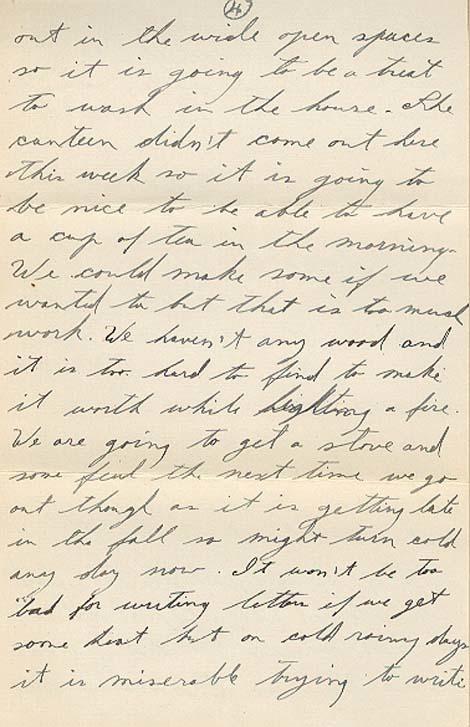 4
out in the wide open spaces
so it is going to be a treat
to wash in the house. The
canteen didn't come out here
this week so it is going to
be nice to be able to have
a cup of tea in the morning.
We could make some if we
wanted to but that is too much
work. We haven't any wood and
it is too hard to find to make
it worth while lighting a fire.
We are going to get a stove and
some fuel the next time we go
out though as it is getting late
in the fall so might turn cold
any day now. It won't be too
bad for writing letters if we get
some heat but on cold rainy days
it is miserable trying to write